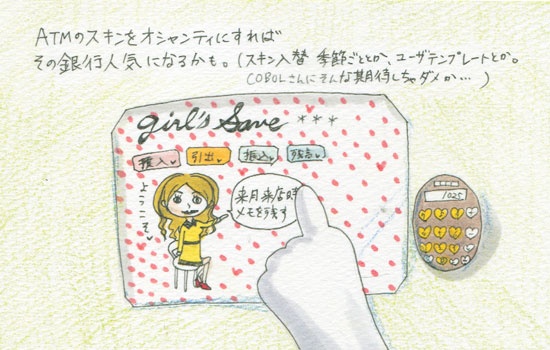 ATMのスキンをオシャンティにすれば
その銀行人気になるかも。(スキン入替 季節ごととか、ユーザテンプレートとか。
COBOLさんにそんな期待しちゃダメか… )
girl's Save ***
預入
引出
振込
残高
ようこそ
来月来店時
メモを残す
1025